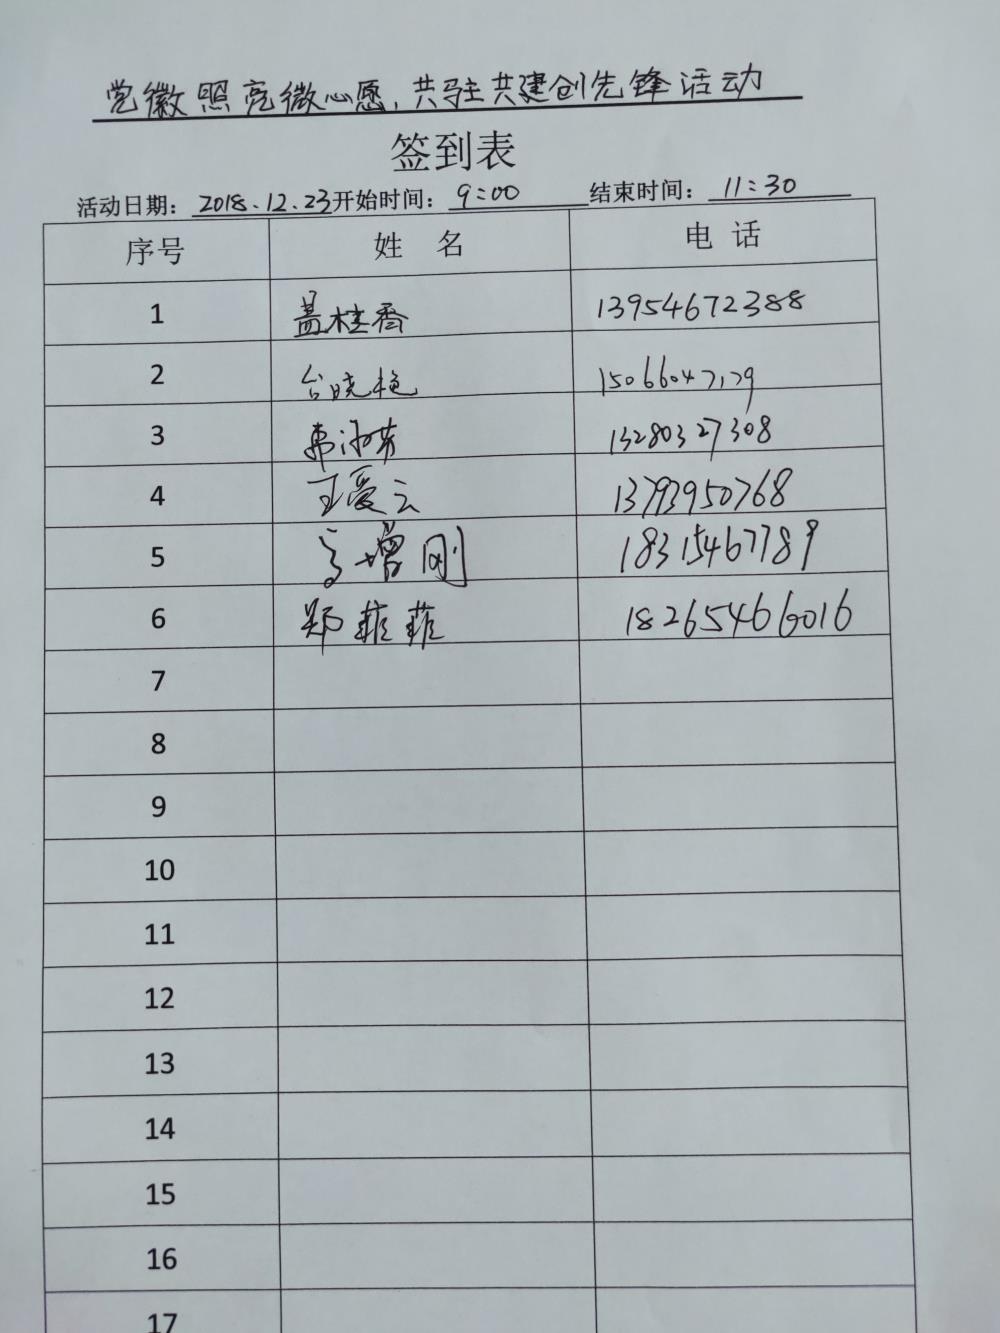 党徽照亮微心愿,共驻共建创先锋活动
签到表
活动日期：2018.12.23开始时间：9:00 结束时间：11:30
序号 姓 名 电 话
1 盖桂香 13954672388
2 台晓艳 15066047179
3 13280327308
4 王爱云 13793950768
5 增刚 18315467789
6 郑菲菲 18265466016
7
8
9
10
11
12
13
14
15
16
17